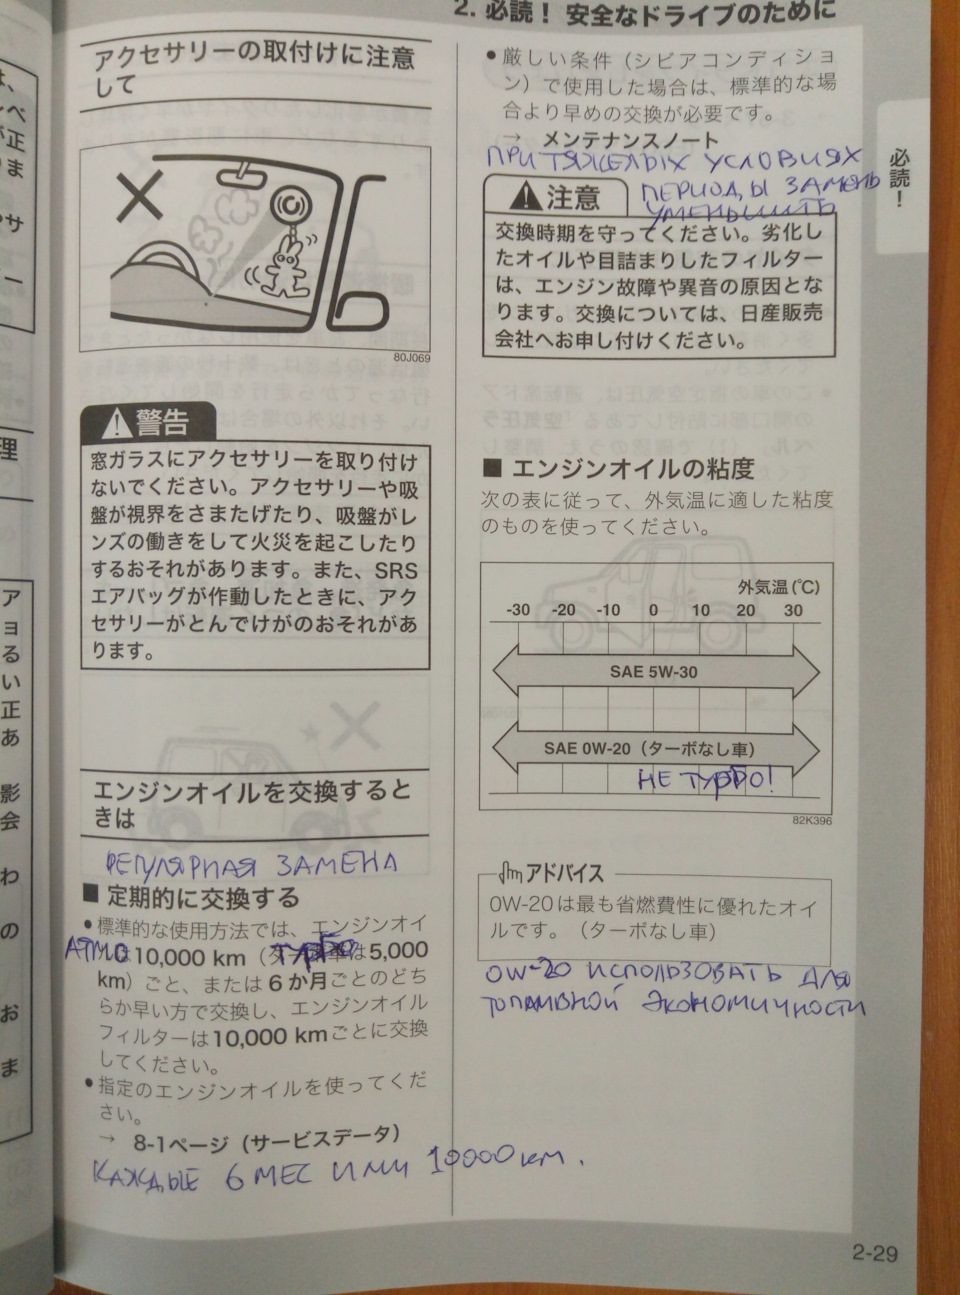 2. 必読！ 安全なドライブのために
アクセサリーの取付けに注意
して
80J069
警告
窓ガラスにアクセサリーを取り付け
ないでください。アクセサリーや吸
盤が視界をさまたげたり、吸盤がレ
ンズの働きをして火災を起こしたり
するおそれがあります。また、SRS
エアバッグが作動したときに、アク
セサリーがとんでけがのおそれがあ
ります。
エンジンオイルを交換するあと
きは
РЕГУЛЯРНАЯ ЗАМЕНА
■ 定期的に交換する
●標準的な使用方法では、エンジンオイ
АТМО は10,000 km（ ТУРБО は5,000
km）ごと、または6か月ごとのどち
らか早い方で交換し、エンジンオイル
フィルターは10,000 kmごとに交換
してください。
●指定のエンジンオイルを使ってくだ
さい。
→ 8-1ページ（サービスデータ）
КАЖДЫЕ 6 МЕС ИЛИ 10000 км.
●厳しい条件（シビアコンディショ
ン）で使用した場合は、標準的な場
合より早めの交換が必要です。
→ メンテナンスノート
ПРИ ТЯЖЕЛЫХ УСЛОВИЯХ
ПЕРИОДЫ ЗАМЕНЬ
УМЕНЬШИТЬ
注意
交換時期を守ってください。劣化し
たオイルや目詰まりしたフィルター
は、エンジン故障や異音の原因とな
ります。交換については、日産販売
会社へお申し付けください。
■ エンジンオイルの粘度
次の表に従って、外気温に適した粘度
のものを使ってください。
外気温(℃)
-30 -20 -10 0 10 20 30
SAE 5W-30
SAE 0W-20（ターボなし車）
НЕ ТУРБО!
82K396
アドバイス
0W-20は最も省燃費性に優れたオイ
ルです。（ターボなし車）
0W-20 ИСПОЛЬЗОВАТЬ ДЛЯ
ТОПЛИВНОЙ ЭКОНОМИЧНОСТИ
必読！
2-29